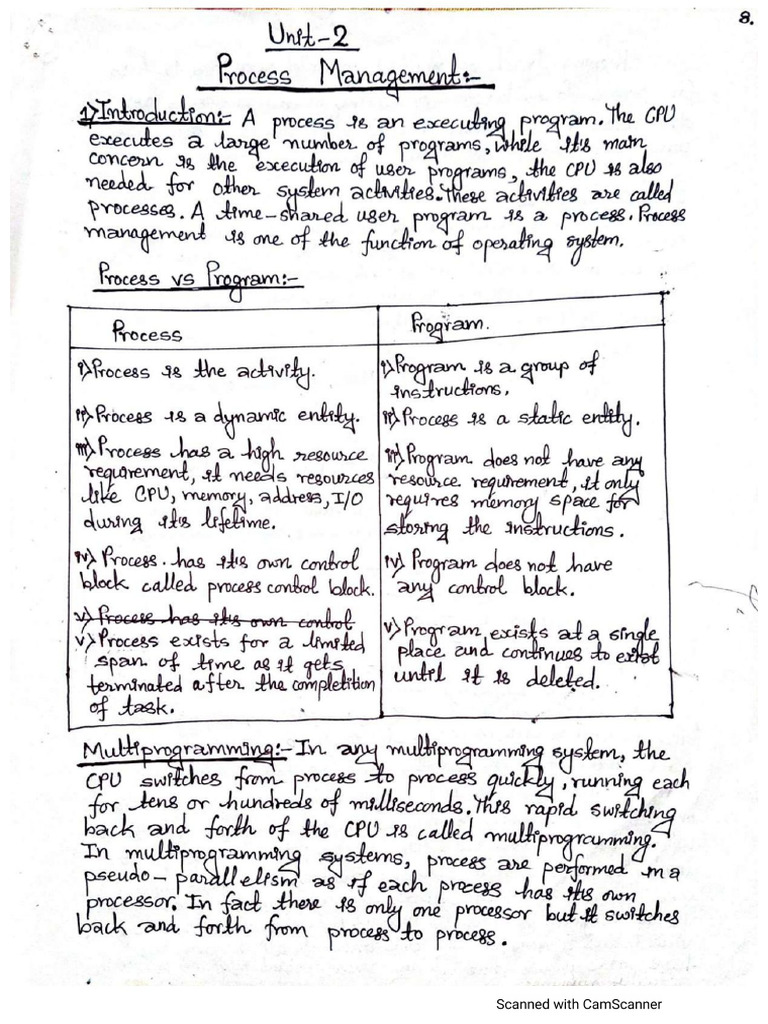 8.
Unit-2
Process Management:-
1) Introduction:- A process is an executing program. The CPU
executes a large number of programs, while it's main
concern is the execution of user programs, the CPU is also
needed for other system activities. These activities are called
processes. A time-shared user program is a process. Process
management is one of the function of operating system.
Process vs Program:-
Process
i) Process is the activity.
ii) Process is a dynamic entity.
iii) Process has a high resource
requirement, it needs resources
like CPU, memory, address, I/O
during it's lifetime.
iv) Process has it's own control
block called process control block.
v) Process has its own control
v) Process exists for a limited
span of time as it gets
terminated after the completition
of task.
Program.
i) Program is a group of
instructions.
ii) Process is a static entity.
iii) Program does not have any
resource requirement, it only
requires memory space for
storing the instructions.
iv) Program does not have
any control block.
v) Program exists at a single
place and continues to exist
until it is deleted.
Multiprogramming:- In any multiprogramming system, the
CPU switches from process to process quickly, running each
for tens or hundreds of milliseconds. This rapid switching
back and forth of the CPU is called multiprogramming.
In multiprogramming systems, process are performed in a
pseudo-parallelism as if each process has its own
processor. In fact there is only one processor but it switches
back and forth from process to process.
Scanned with CamScanner